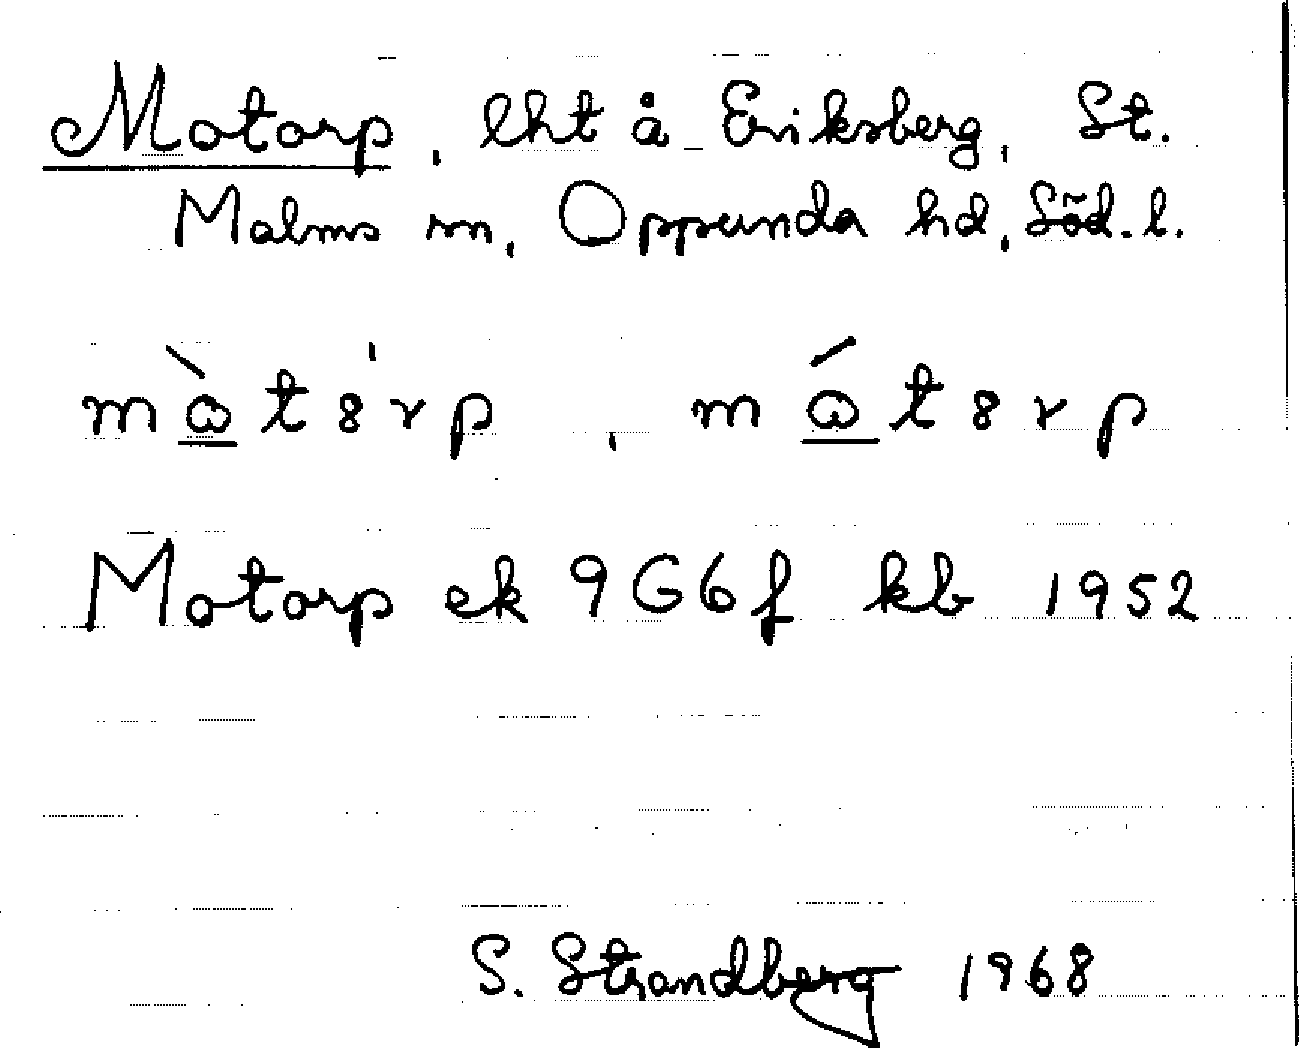 Motorp, lht å Eriksberg, St.
Malms sn, Oppunda hd, Söd. l.
mὼt8'rp, mώt8rp
Motorp ek 9G6f kb 1952
S. Strandberg 1968